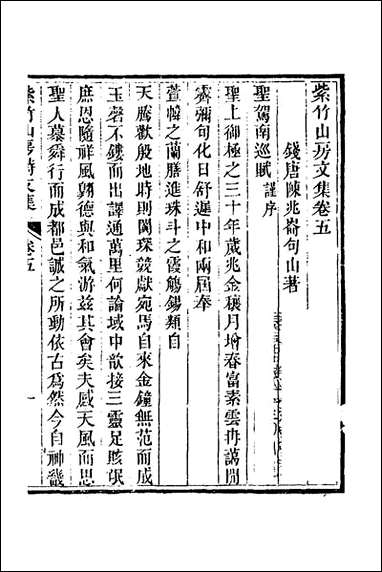 紫竹山房文集卷五
錢唐陳兆崙句山著
聖駕南巡賦謹序
聖上御極之三十年歲兆金穰月增春富素雲冉藹閒
霽彌旬化日舒遲中和兩屆奉
萱幃之蘭膳進珠斗之霞觴錫類自
天騰歡殷地時則閬琛競獻宛馬自來金鐘無范而成
玉磬不鏤而出譯通萬里何論域中歆接三靈足賅氓
庶恩隨祥風翺德與和氣游茲其會矣夫感天風而思
聖人慕舜行而成都邑誠之所動依古為然今自神畿
紫竹山房詩文集
卷五
一